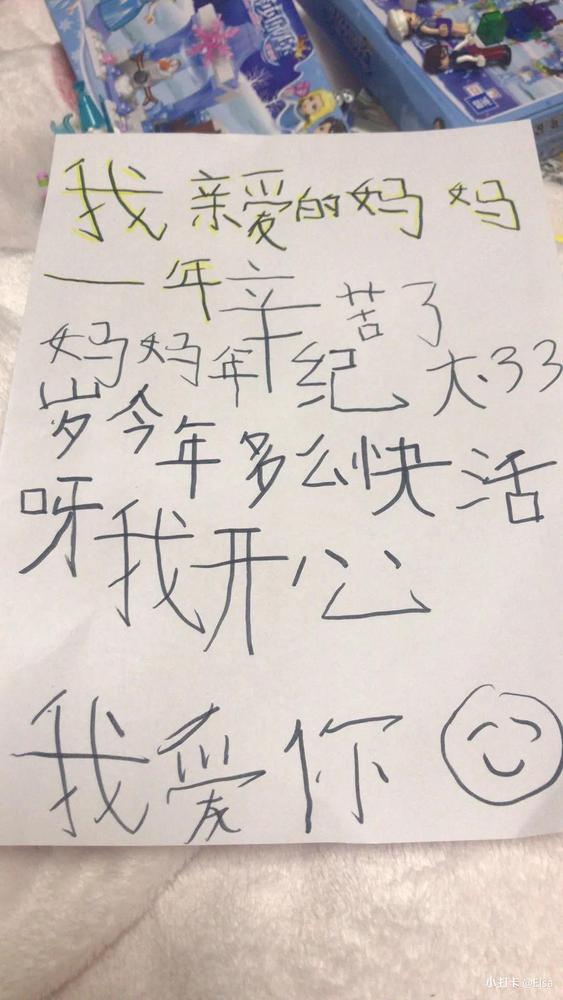 我亲爱的妈妈
一年辛苦了
妈妈年纪大33
岁今年多么快活
呀我开公
我爱你
小打卡@Elsa